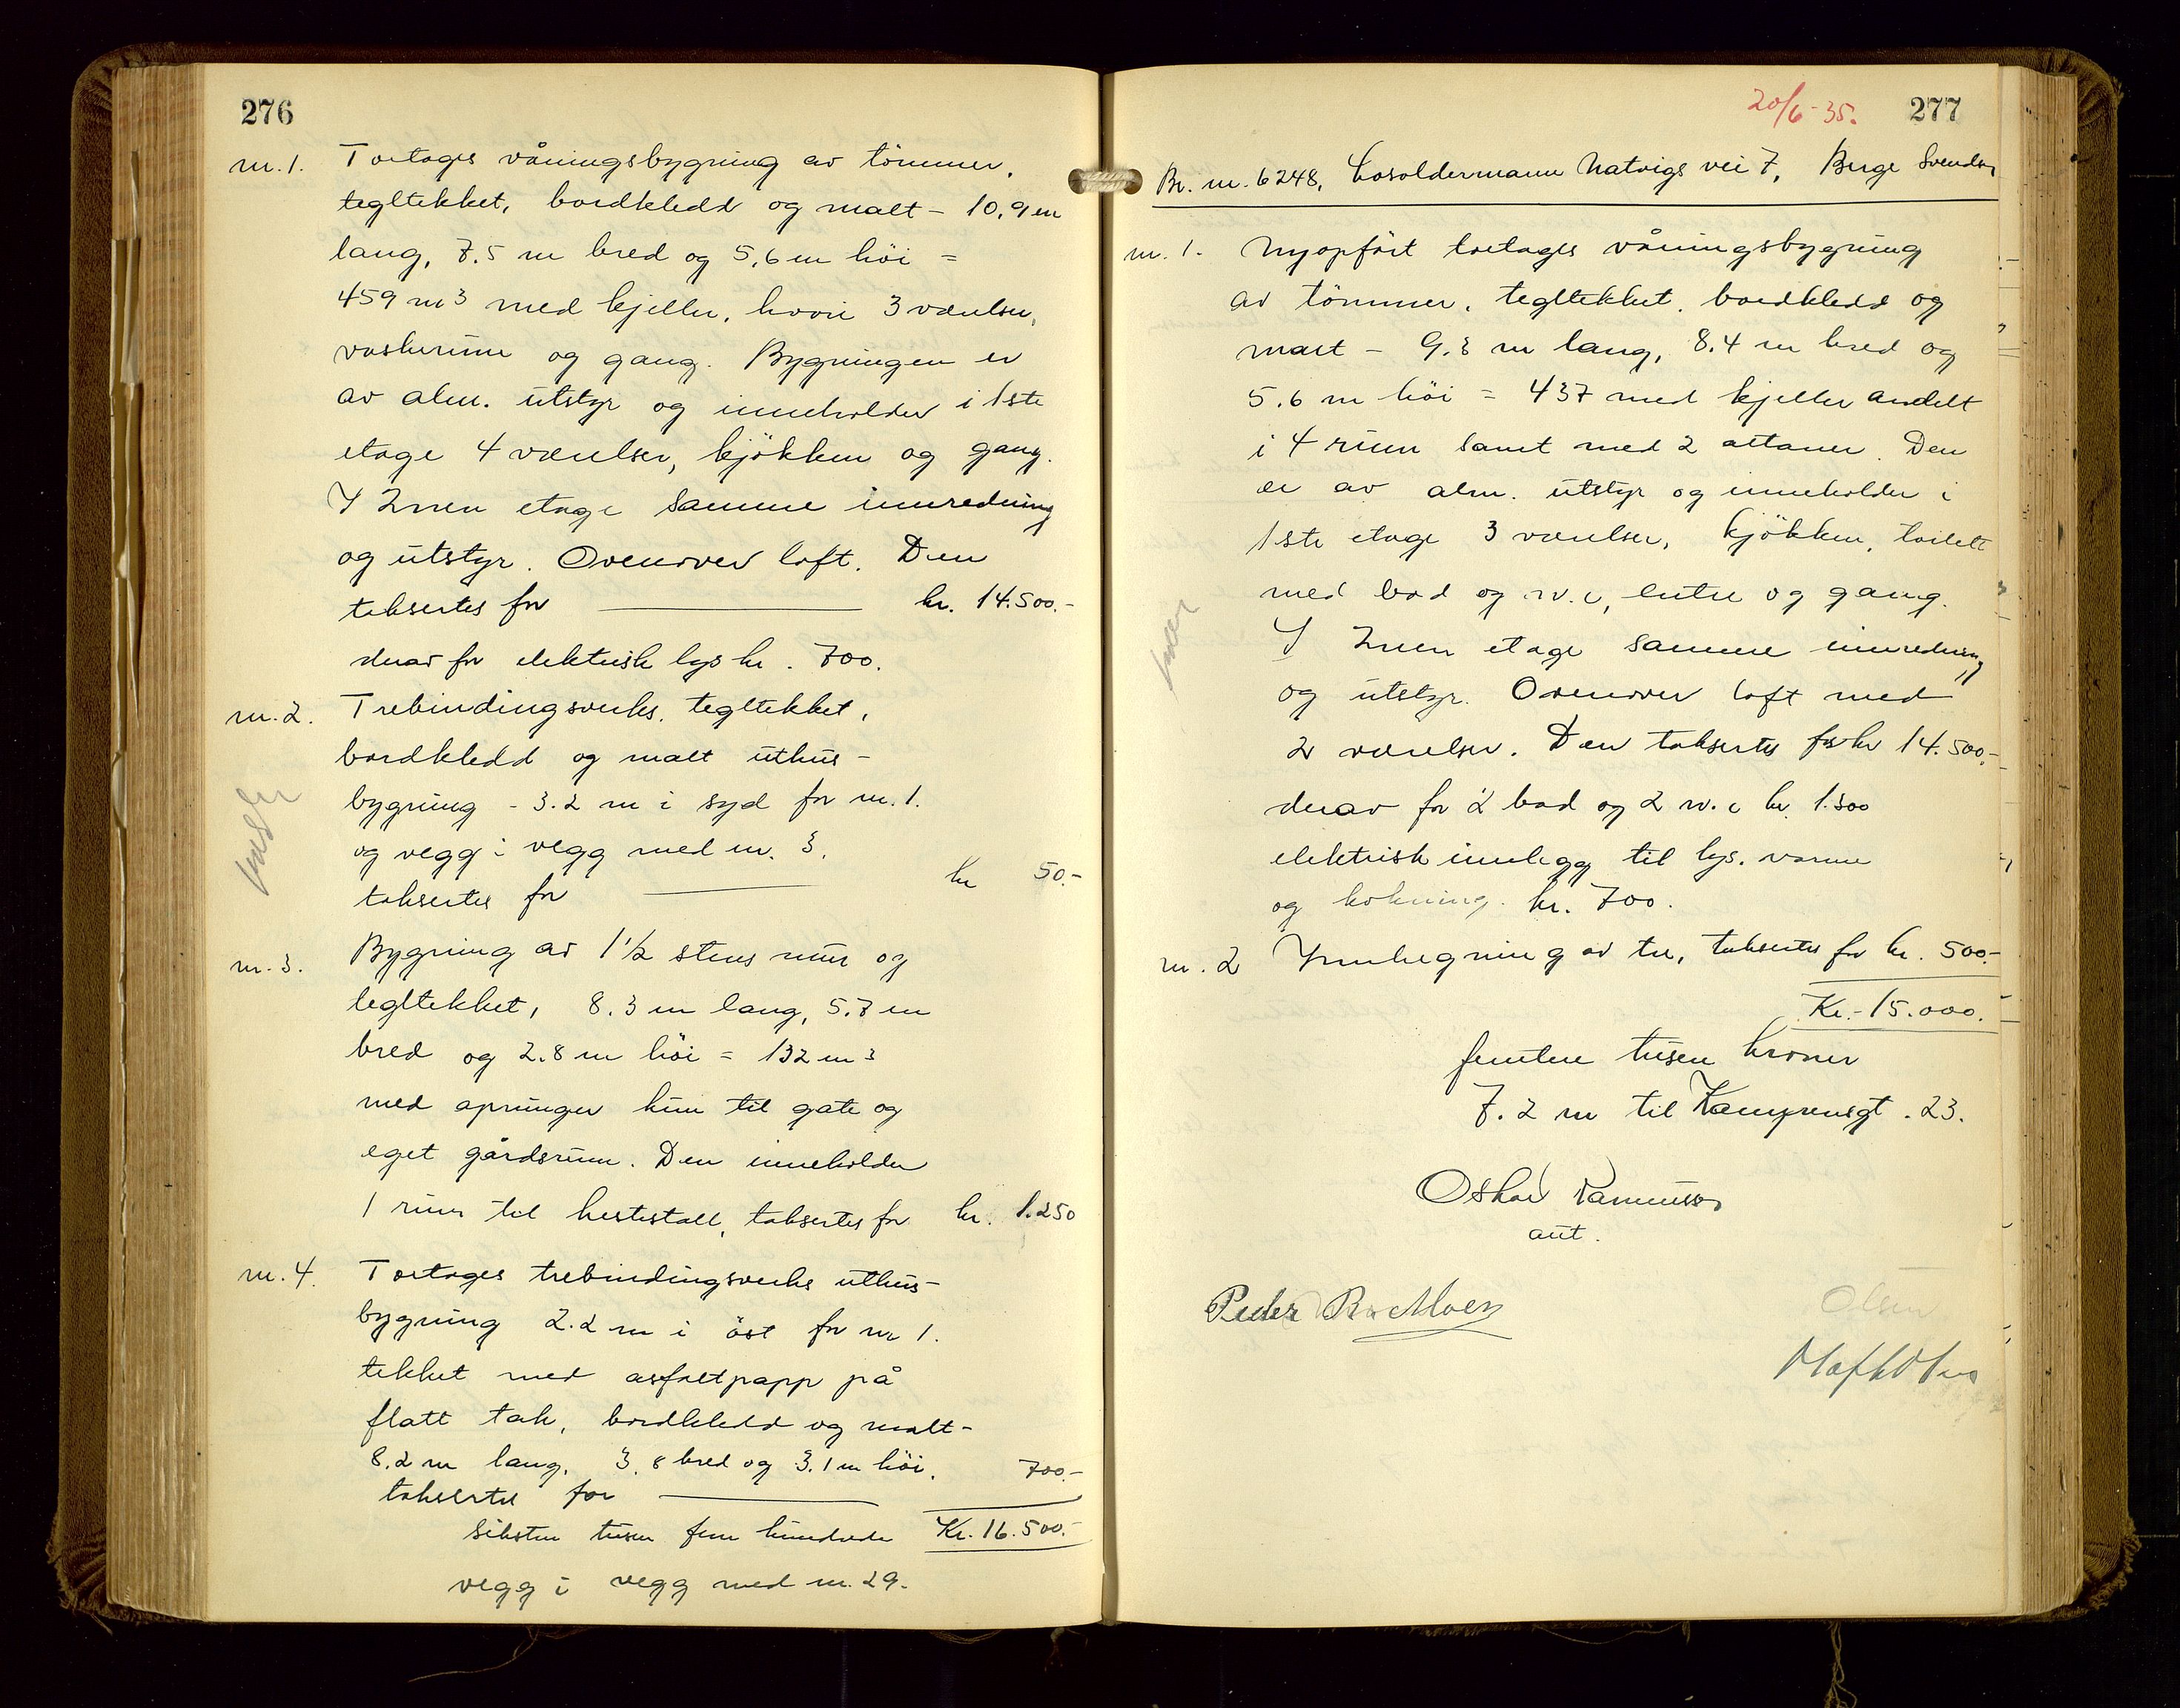 276
nr. 1. Toetages våningsbygning av tömmer,
tegltekket, bordkledd og malt - 10,9 m
lang, 7.5 m bred og 5,6 m höi =
459 m3 med kjeller, hvori 3 værelser,
vaskerum og gang. Bygningen er
av alm. utstyr og inneholder i 1ste
etage 4 værelser, kjökken og gang.
I 2nen etage samme innredning
og utstyr. Ovenover loft. Den
takseres for kr. 14.500.-
derav for elektrisk lys kr. 700.
nr. 2. Trebindingsverks, tegltekket,
bordkledd og malt uthus-
bygning - 3.2 m i syd for nr. 1.
og vegg i vegg med nr. 3.
takseres for kr 50.-
nr. 3. Bygning av 1 1/2 stens mur og
tegltekket, 8.3 m lang, 5.7 m
bred og 2.8 m höi = 132 m3
med åpninger kun til gate og
eget gårdsrum. Den inneholder
1 rum til hestestall, takseres for kr. 1.250
nr. 4. Toetages trebindingsverks uthus-
bygning 2.2 m i öst for nr 1.
tekket med asfaltpapp på
flatt tak, bordkledd og malt -
8.2 m lang, 3.8 bred og 3.1 m höi. 700.-
takseres for
seksten tusen fem hundrede Kr. 16.500.-
vegg i vegg med nr. 29.
20/6-35. 277
Br. nr. 6248, Losoldermann Natvigs vei 7, Birge Svendsen
nr. 1. Nyopfört toetages våningsbygning
av tömmer, tegltekket, bordkledd og
malt - 9.3 m lang, 8.4 m bred og
5.6 m höi = 437 med kjeller avdelt
i 4 rum samt med 2 altaner. Den
er av alm. utstyr og inneholder i
1ste etage 3 værelser, kjökken, toilett
med bad og w.c, entre og gang.
I 2nen etage samme innredning
og utstyr. Ovenover loft med
2 værelser. Den takseres for kr 14.500.-
derav for 2 bad og 2 w.c kr. 1.300
elektrisk innlegg til lys, varme
og kokning. kr. 700.
nr. 2 Innhegning av tre, takseres for kr. 500.-
Kr.- 15.000.
femten tusen kroner
7.2 m til Kampensgt. 23.
Oskar Rasmussen
aut.
Peder R. Moen
Olsen